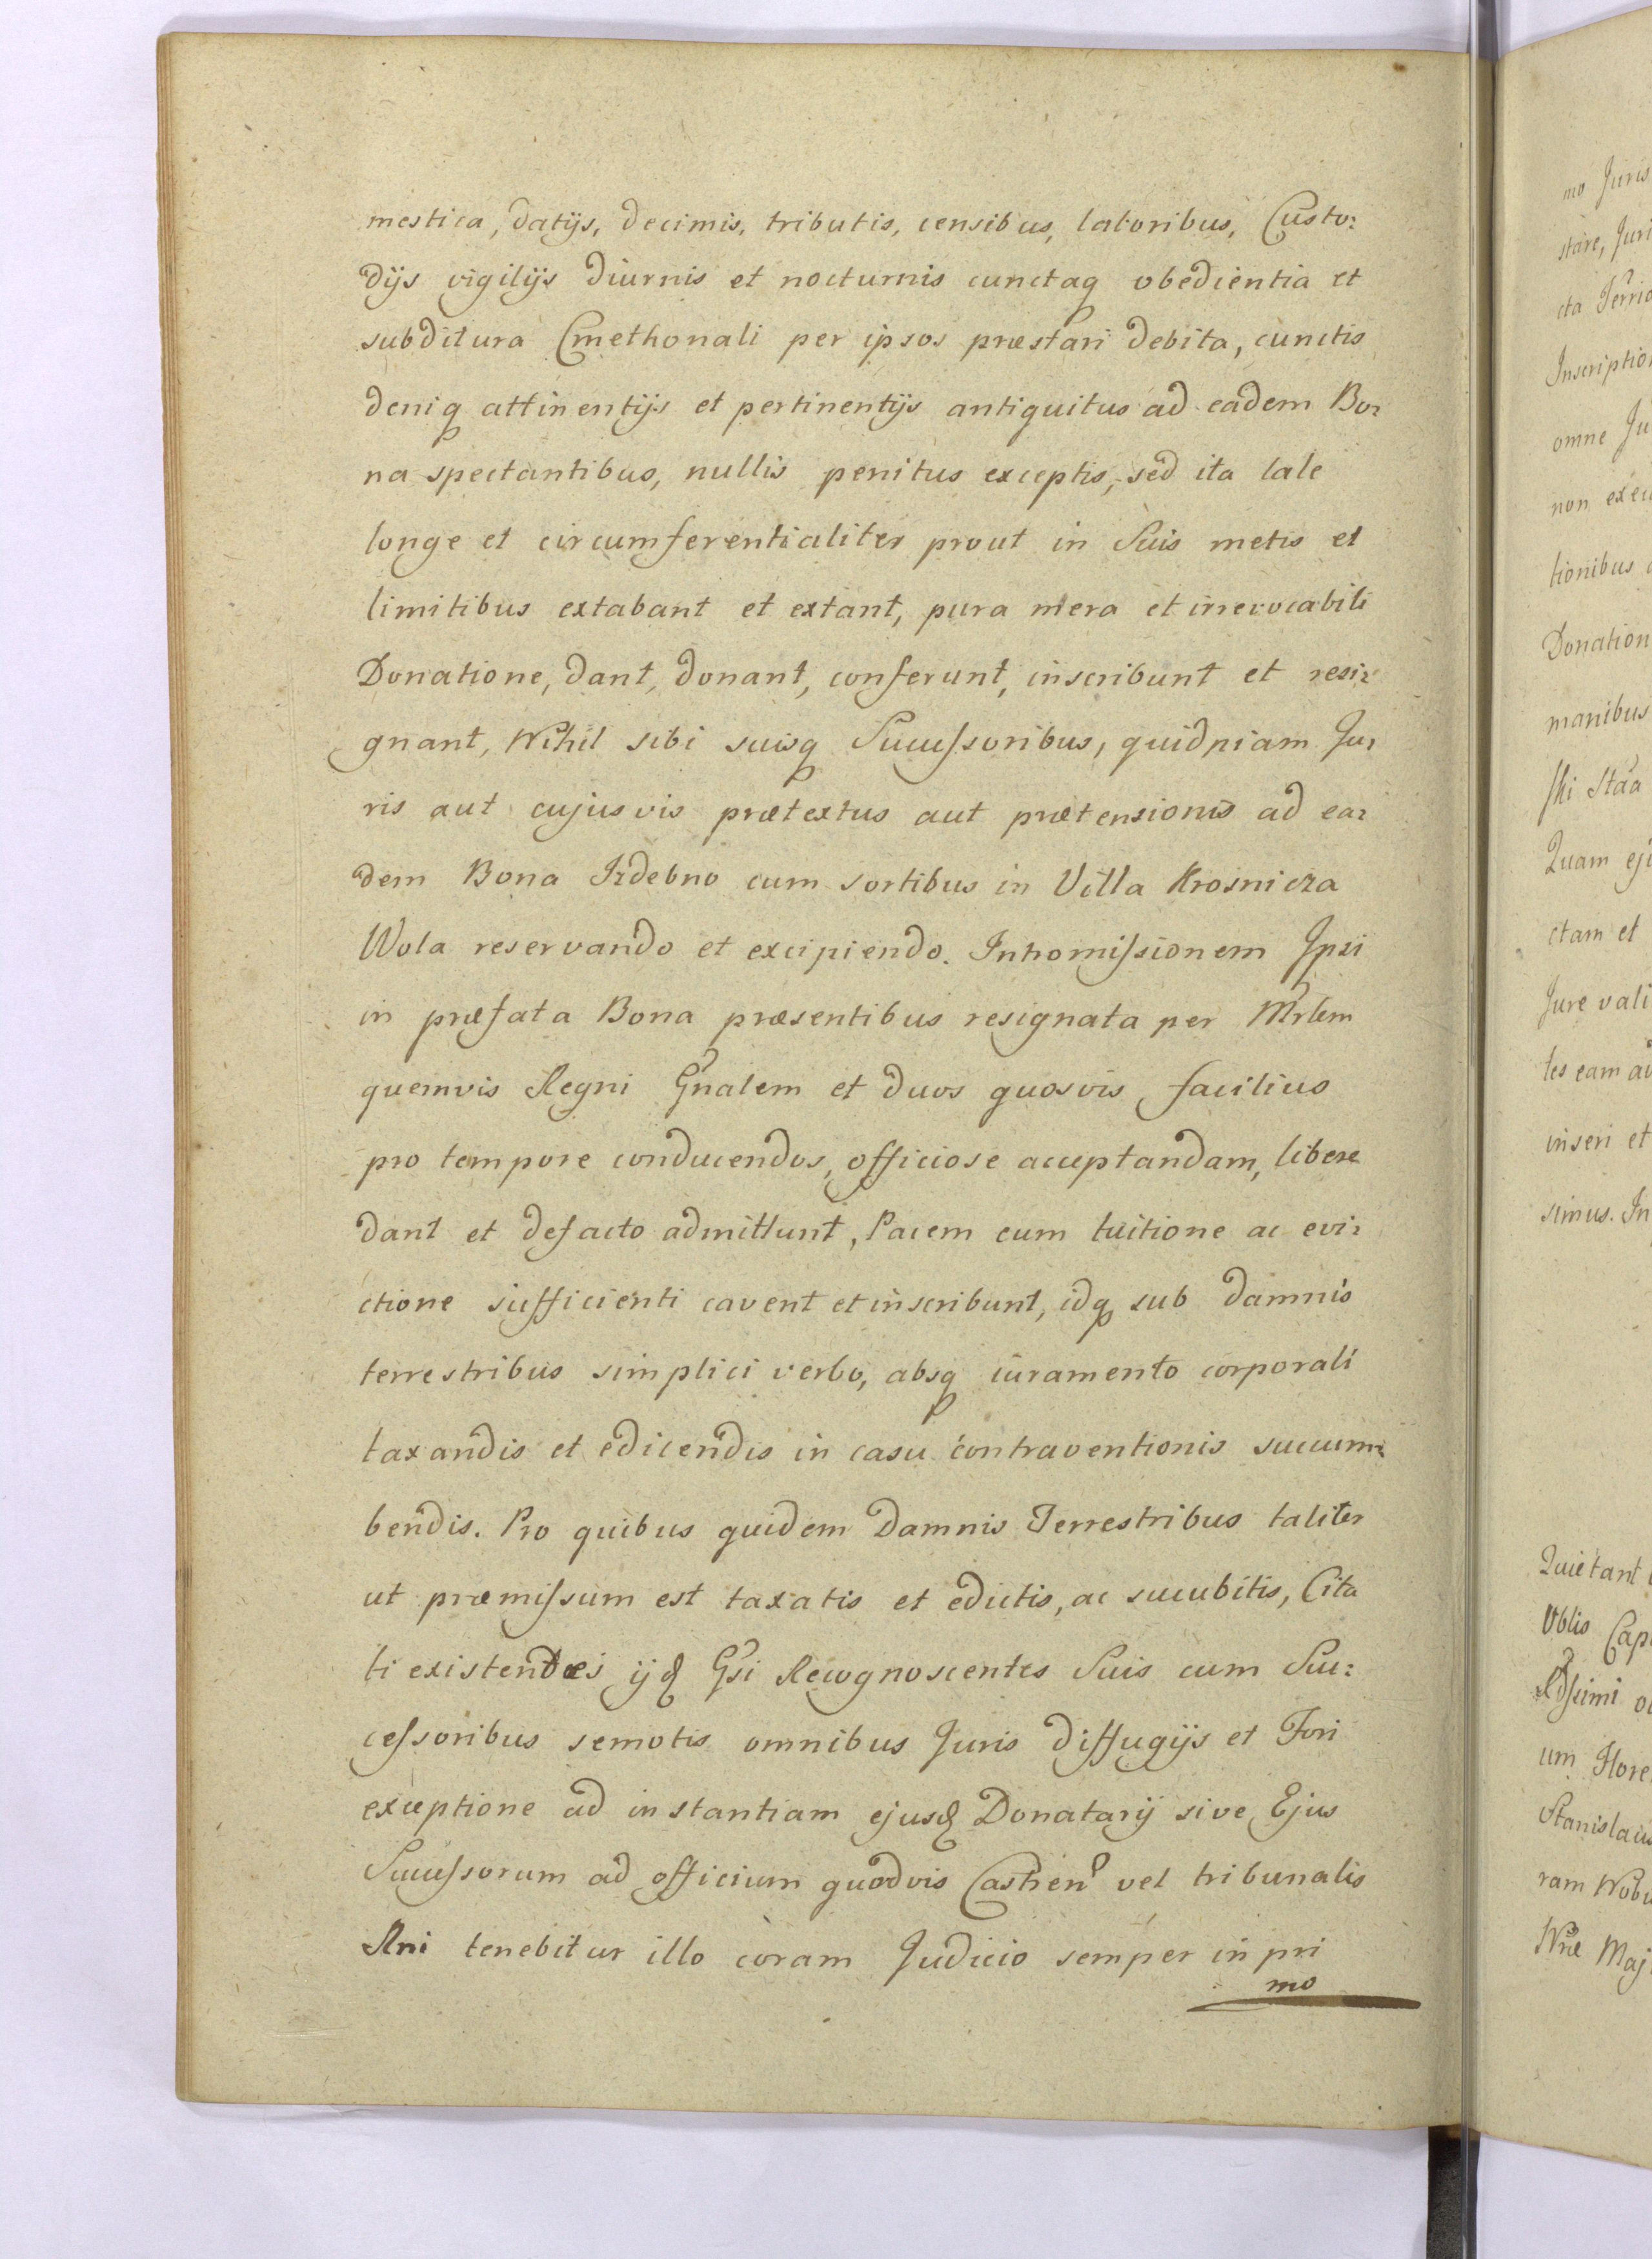 mestica, datijs, decimis, tributis, censibus, laboribus, Custo:
dijs vigilijs diurnis et nocturnis cunctaq obedientia et
subditura Cmethonali per ipsos præstari debita, cunctis
deniq attinentijs et pertinentijs antiquitus ad eadem Bo:
na spectantibus, nullis penitus exceptis, sed ita late
longe et circumferentialiter prout in Suis metis et
limitibus extabant et extant, pura mera et irrevocabili
Donatione, dant, donant, conferunt, inscribunt et resi:
gnant, Nihil sibi suisq Sucueſsoribus, quidpiam Ju:
ris aut cujusvis prætextus aut prætensionis ad ea:
dem Bona Jzdebno cum sortibus in Villa Krosnicza
Wola reservando et excipiendo. Intromiſsionem Ipsi
in præfata Bona præsentibus resignata per Mrlem
quemvis Regni Gnalem et duos quosvis facilius
pro tempore conducendos, officiose acceptandam, libere
dant et defacto admittunt, Pacem cum tuitione ac evi:
ctione sufficienti cavent et inscribunt, idq sub damnis
terrestribus simplici verbo, absq iuramento corporali
taxandis et edicendis in casu contraventionis succum:
bendis. Pro quibus quidem Damnis Terrestribus taliter
ut præmiſsum est taxatis et edictis, ac sucubitis, Cita
ti existentes ijd Gsi Recognoscentes Suis cum Suc:
ceſsoribus semotis omnibus Juris diffugijs et Fori
exceptione ad instantiam ejusd Donatarij sive Ejus
Succeſsorum ad officium quodvis Castren vel tribunalis
Rni tenebitur illo coram Judicio semper in pri
mo
mo Juris
stare, Juri
cta Terr
Inscription
omne Ju
non exeu
tionibus
Donation
manibus
ſki Staa
Quam ej
ctam et
Jure vali
tes eam au
inseri et
simus. In
Quietant
Oblis Cap
um Flore
Stanislau
ram Wob
Wnæ Maj